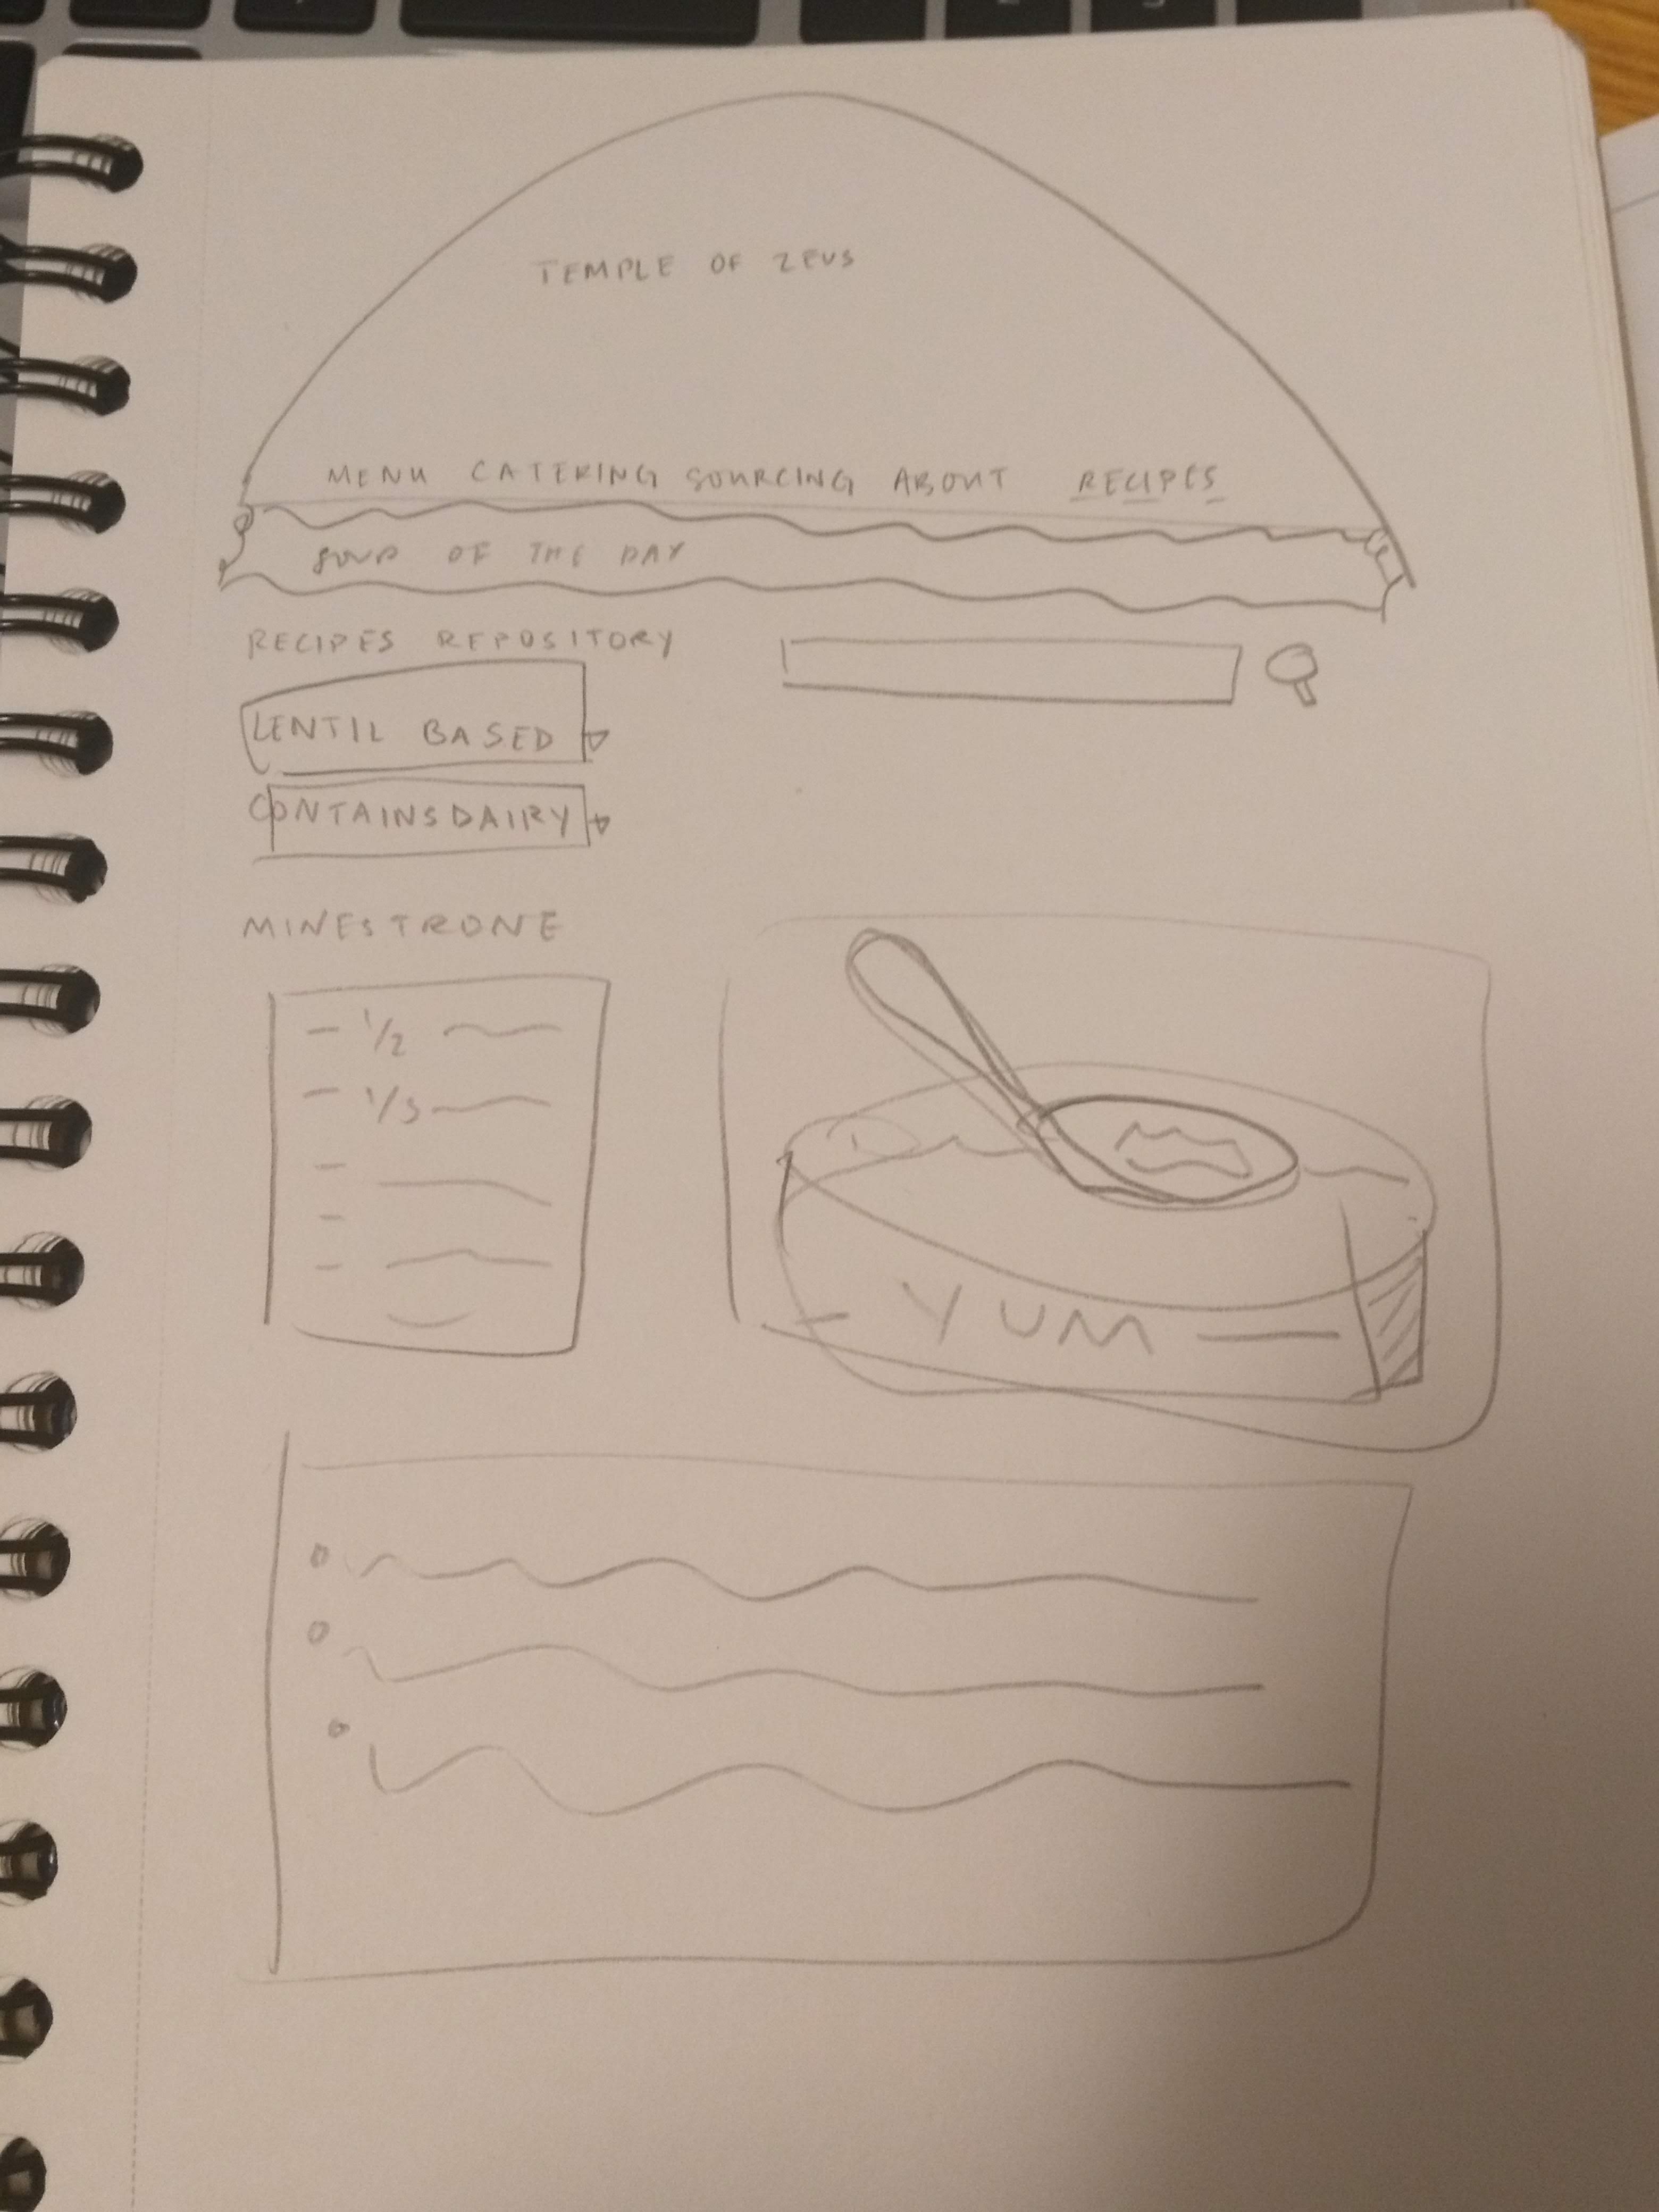 TEMPLE OF ZEUS
MENU CATERING SOURCING ABOUT RECIPES
SOUP OF THE DAY
RECIPES REPOSITORY
LENTIL BASED
CONTAINS DAIRY
MINESTRONE
- 1/2
- 1/3
YUM